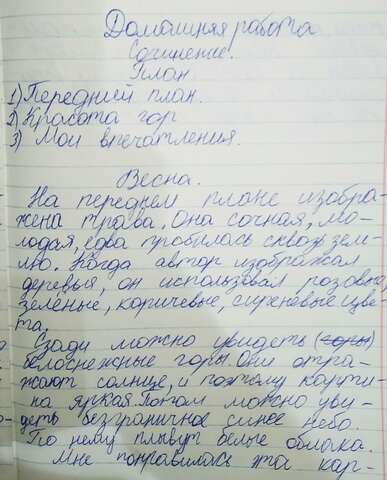 Домашняя работа
Сочинение.
План
1) Передний план.
2) Красота гор
3) Мои впечатления.
Весна.
На переднем плане изобра-
жена трава. Она сочная, мо-
лодая, едва пробилась сквозь зем-
лю. Когда автор изображал
деревья, он использовал розовые,
зелёные, коричневые, сиреневые цве-
та.
Сзади можно увидеть (горы)
белоснежные горы. Они отра-
жают солнце, и поэтому карти-
на яркая. Потом можно уви-
деть безграничное синее небо.
По нему плывут белые облака.
Мне понравилась эта кар-